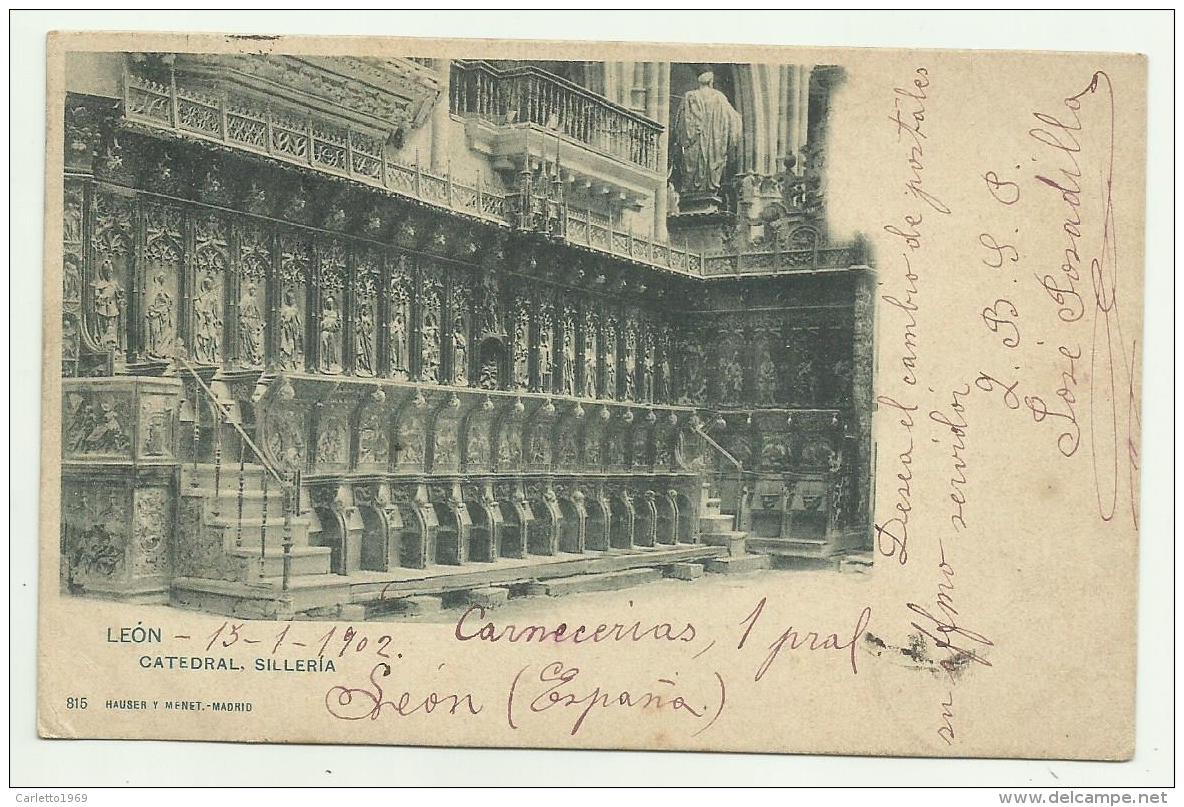 LEÓN - 15-1-1902.
CATEDRAL. SILLERÍA
815 HAUSER Y MENET.-MADRID
Carnecerias, 1 pral
León (España.)
Desea el cambio de postales
su affmo servidor
Q. B. S. P.
José Posadilla
Carletto1969
www.delcampe.net